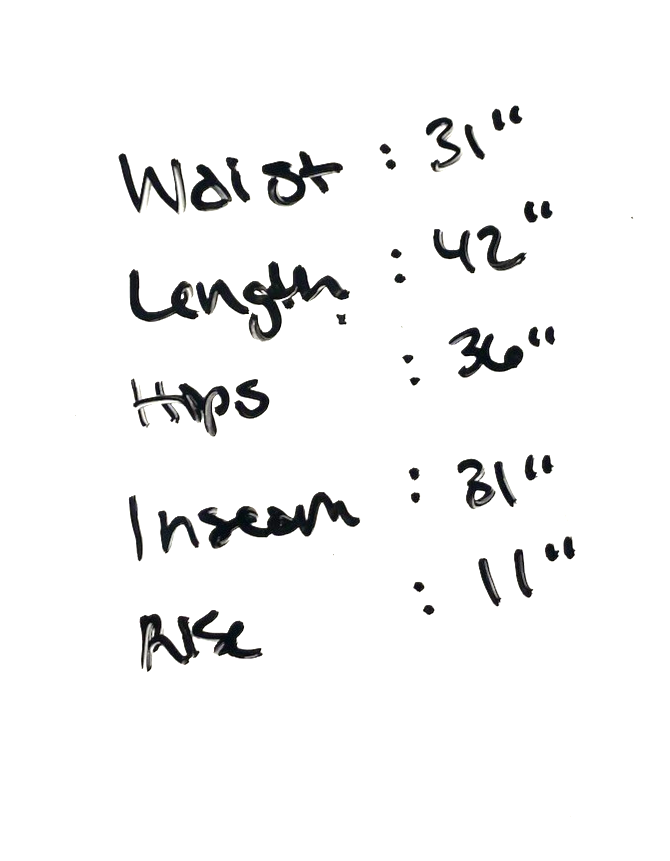 Waist : 31"
Length : 42"
Hips : 36"
Inseam : 31"
Rise : 11"